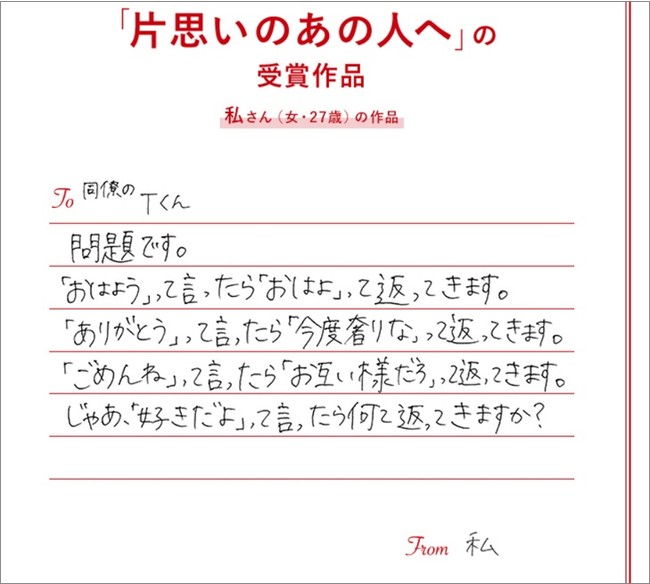 「片思いのあの人へ」の
受賞作品
私さん（女・27歳）の作品
To 同僚の Tくん
問題です。
「おはよう」って言ったら「おはよ」って返ってきます。
「ありがとう」って言ったら「今度奢りな」って返ってきます。
「ごめんね」って言ったら「お互い様だろ」って返ってきます。
じゃあ、「好きだよ」って言ったら何て返ってきますか？
From 私